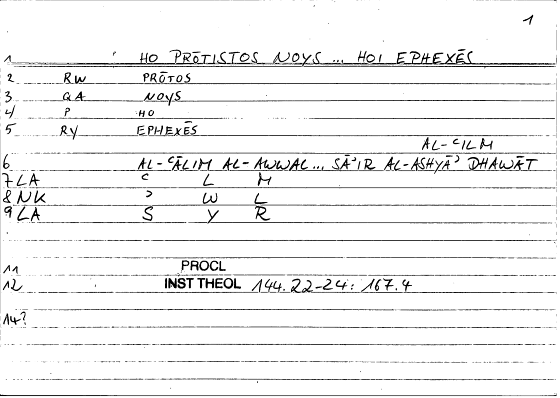 1
1 HO PRŌTISTOS NOYS ... HOI EPHEXĒS
2 RW PRŌTOS
3 QA NOYS
4 P HO
5 RY EPHEXĒS
AL-ʿILM
6 AL-ʿĀLIM AL-AWWAL... SĀʾIR AL-ASHYĀʾ DHAWĀT
7 LA ʿ L M
8 NK ʾ W L
9 LA S Y R
11 PROCL
12 INST THEOL 144.22-24: 167.4
14?